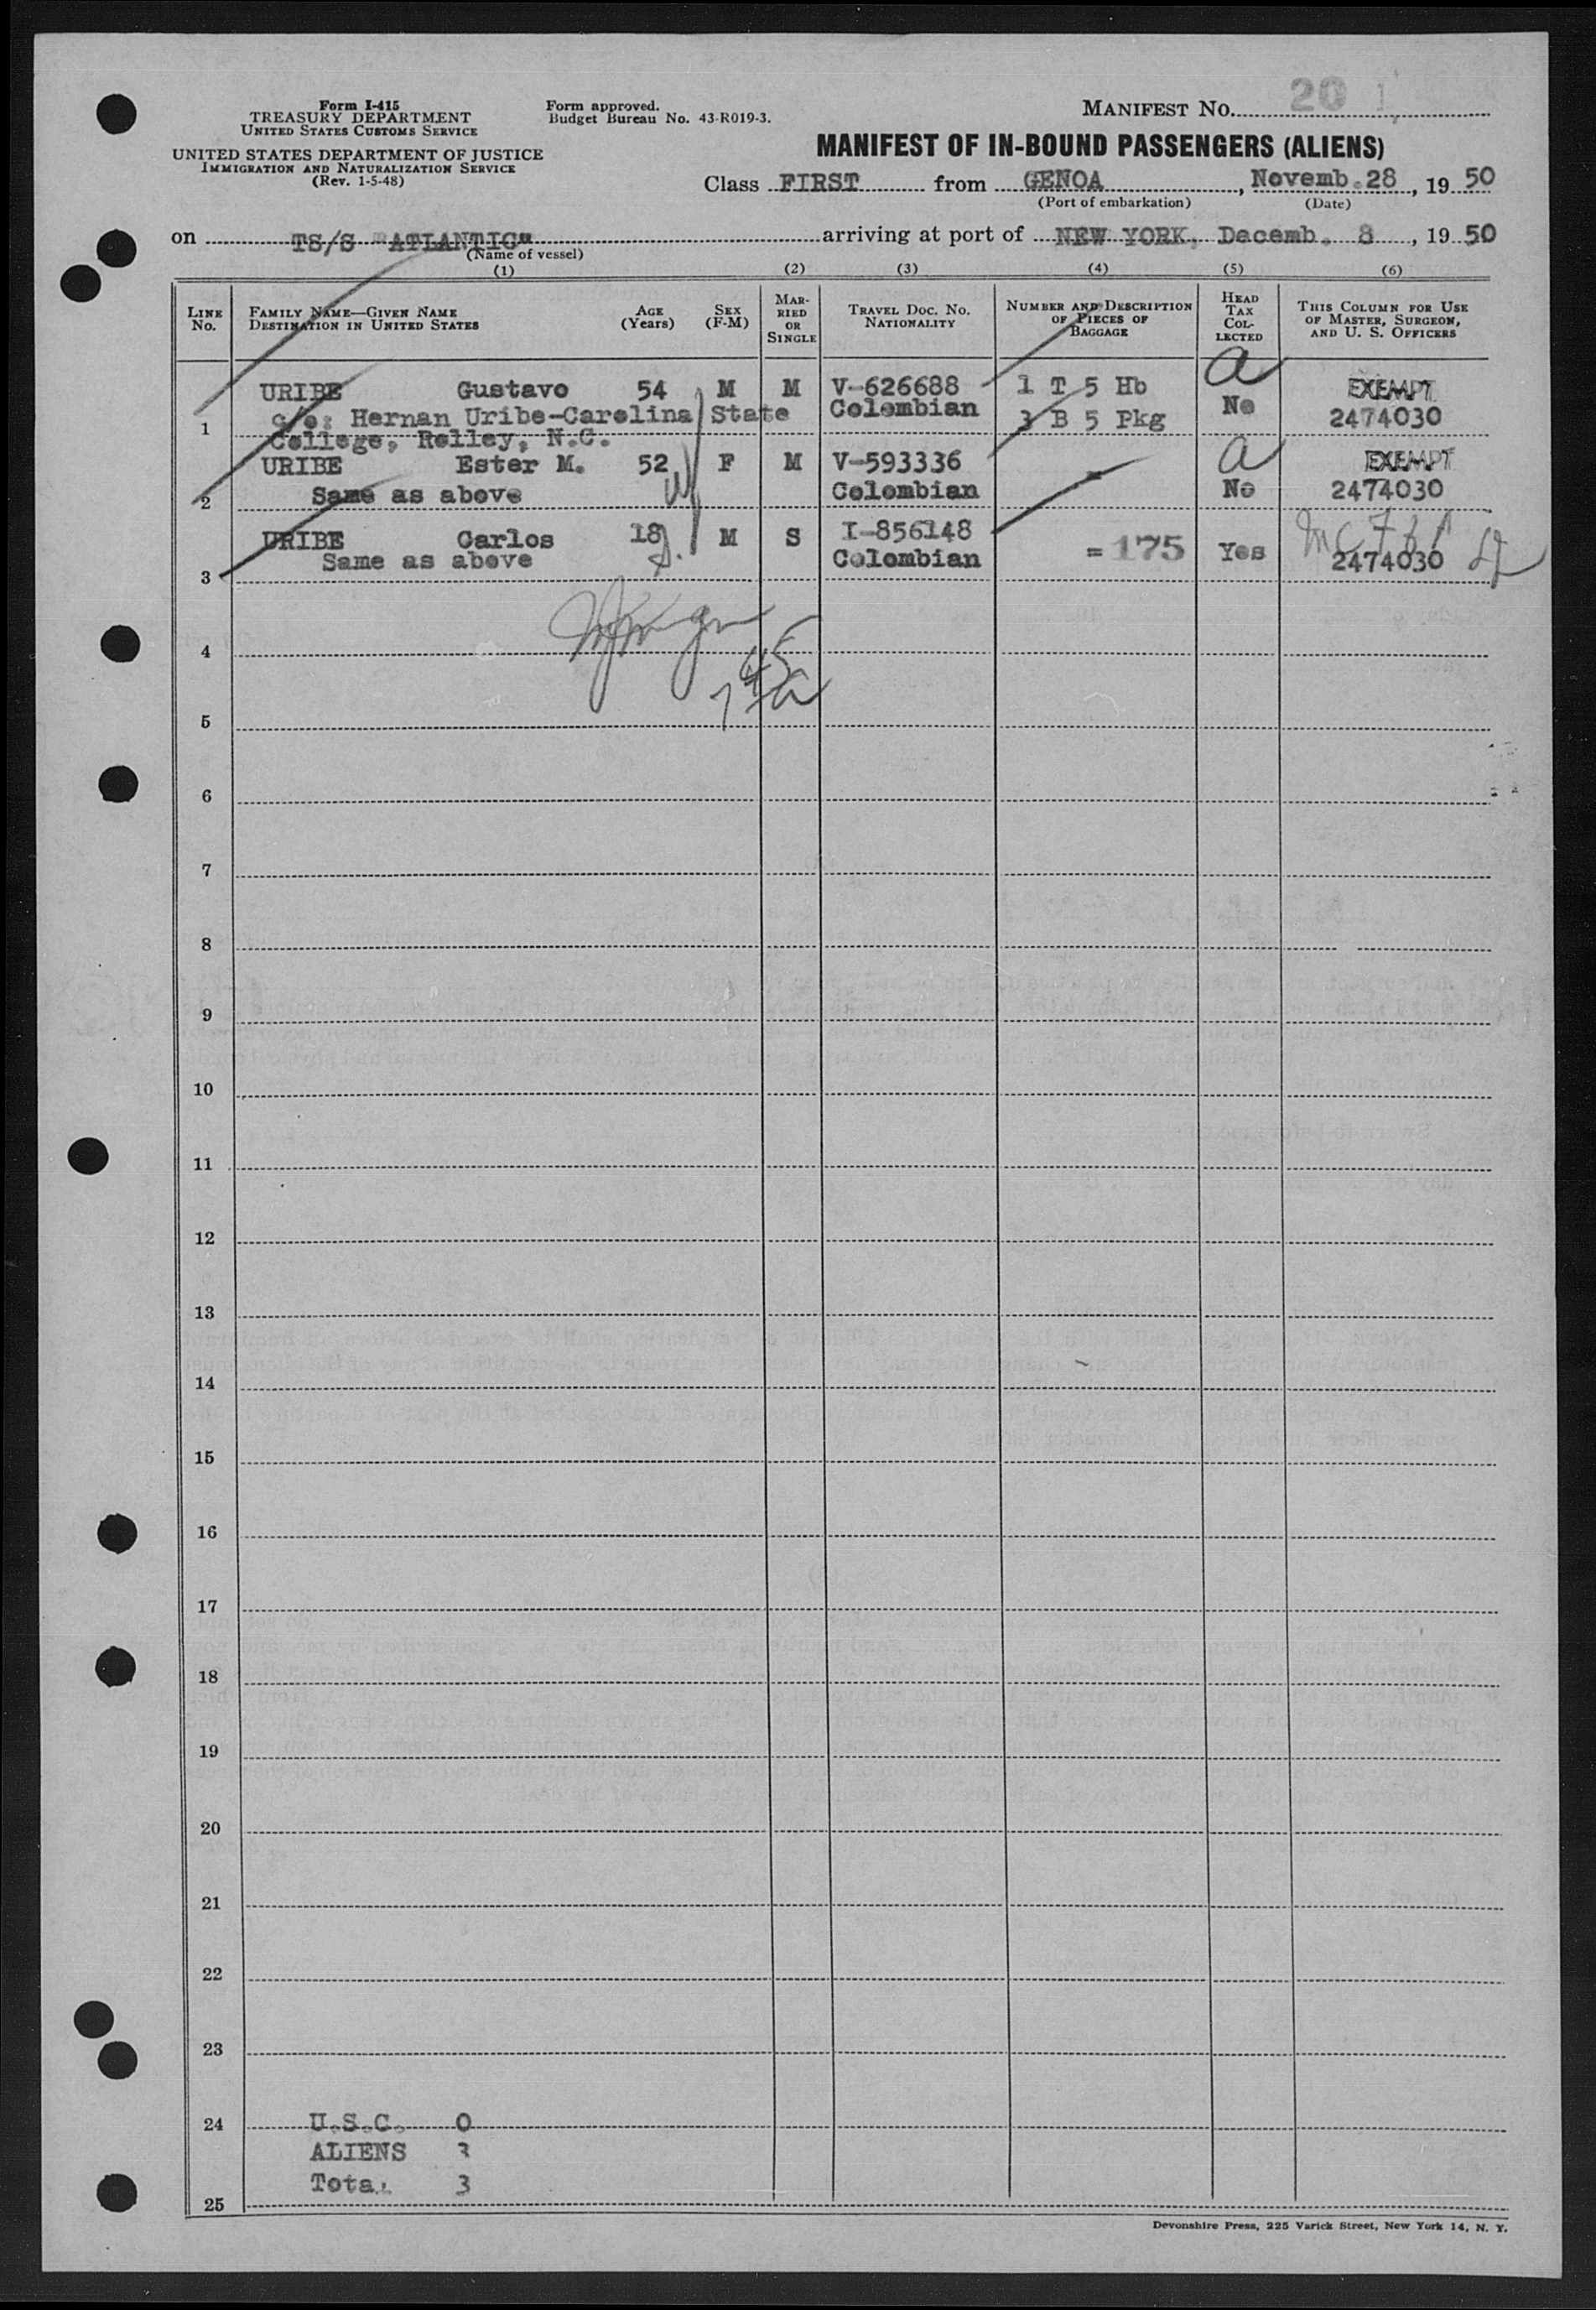 Form I-415
TREASURY DEPARTMENT
UNITED STATES CUSTOMS SERVICE
UNITED STATES DEPARTMENT OF JUSTICE
IMMIGRATION AND NATURALIZATION SERVICE
(Rev. 1-5-48)
Form approved.
Budget Bureau No. 43-R019-3.
MANIFEST NO. 20
MANIFEST OF IN-BOUND PASSENGERS (ALIENS)
Class FIRST from GENOA, Novemb. 28, 19 50
(Port of embarkation) (Date)
on TS/S "ATLANTIC" arriving at port of NEW YORK, Decemb. 8, 19 50
(Name of vessel)
(1) (2) (3) (4) (5) (6)
LINE No.
FAMILY NAME—GIVEN NAME
DESTINATION IN UNITED STATES
AGE
(Years)
SEX
(F-M)
MAR-
RIED
OR
SINGLE
TRAVEL DOC. NO.
NATIONALITY
NUMBER AND DESCRIPTION
OF PIECES OF
BAGGAGE
HEAD
TAX
COL-
LECTED
THIS COLUMN FOR USE
OF MASTER, SURGEON,
AND U. S. OFFICERS
URIBE Gustavo 54 M M V-626688 1 T 5 Hb a EXEMPT
c/o: Hernan Uribe-Carolina State Colombian 3 B 5 Pkg No 2474030
1
College, Relley, N.C.
URIBE Ester M. 52 F M V-593336 = a EXEMPT
Same as above Colombian No 2474030
2
URIBE Carlos 18 M S I-856148
Same as above Colombian = 175 Yes 2474030
3
4
5
6
7
8
9
10
11
12
13
14
15
16
17
18
19
20
21
22
23
24 U.S.C. 0
ALIENS 3
Total 3
25
Devonshire Press, 225 Varick Street, New York 14, N. Y.